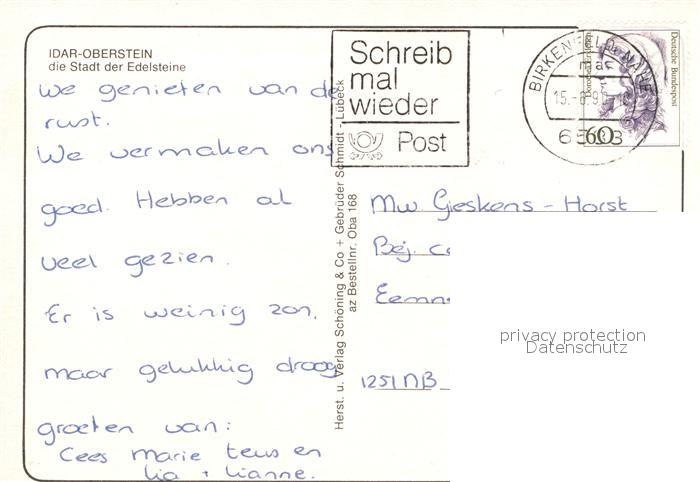 IDAR-OBERSTEIN
die Stadt der Edelsteine
We genieten van de
rust.
We vermaken ons
goed. Hebben al
veel gezien.
Er is weinig zon,
maar gelukkig droog
groeten van:
Cees Marie teus en
lia + lianne.
Herst. u. Verlag Schöning & Co + Gebrüder Schmidt - Lübeck
az Bestellnr. Oba 168
Schreib
mal
wieder
Post
BIRKENFELD, NAHE
15.-8.9
60
Deutsche Bundespost
Mw Gieskens - Horst
Bej.
Eemn
1251 NB
privacy protection
Datenschutz